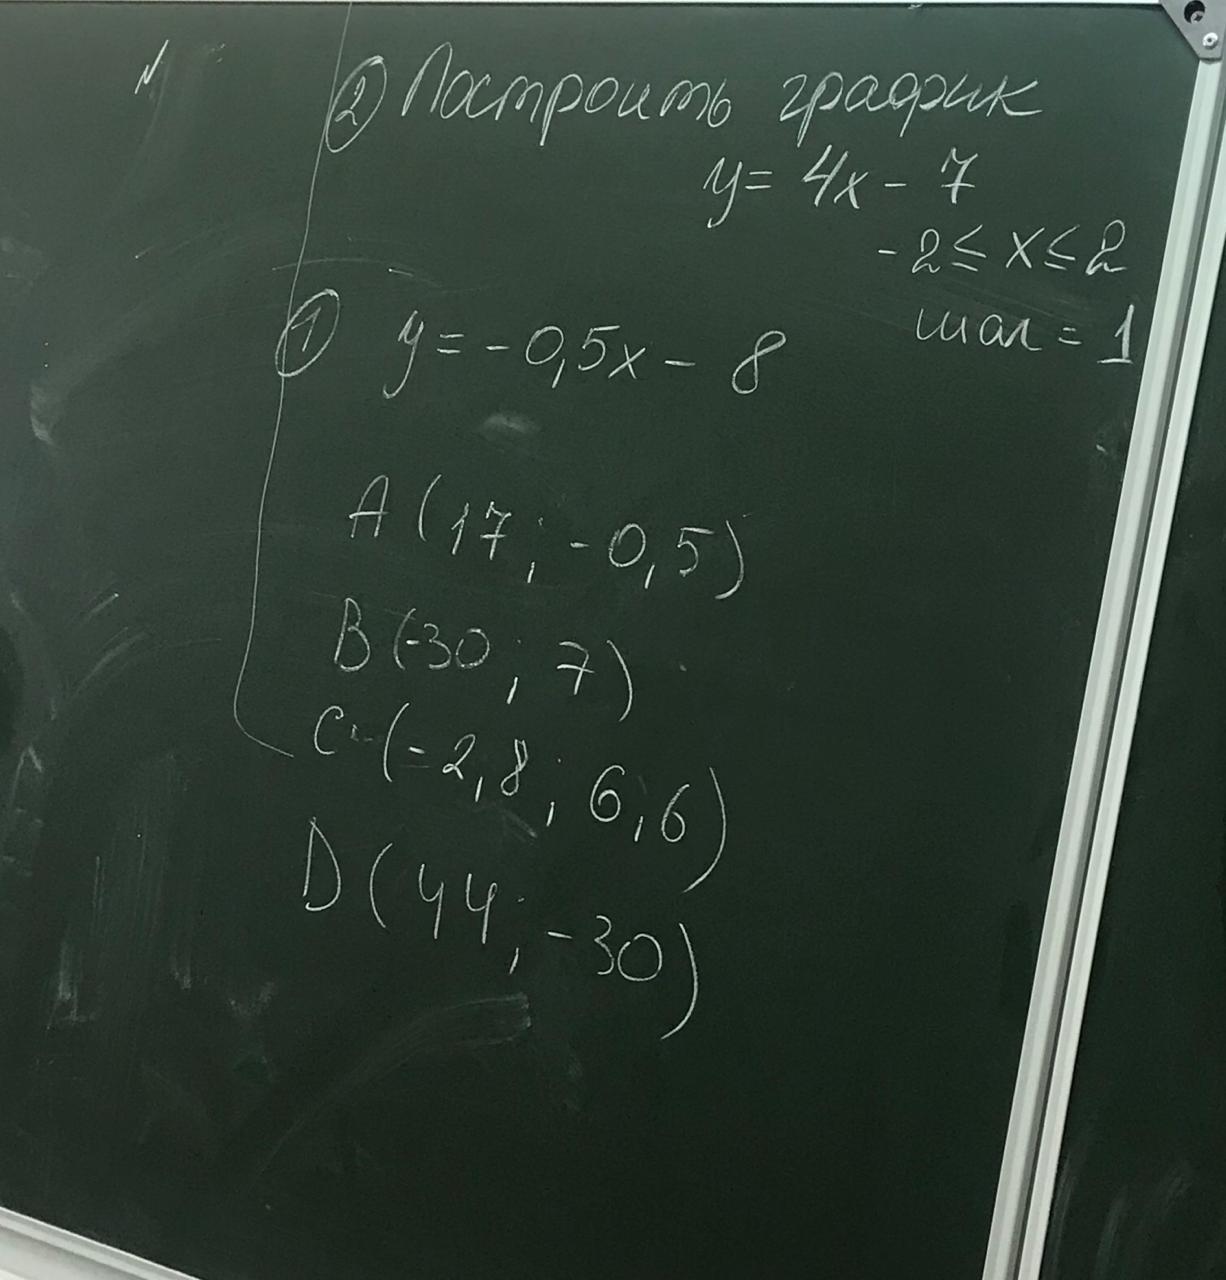 ② Построить график
y = 4x - 7
-2 ≤ x ≤ 2
шаг = 1
① y = -0,5x - 8
A (17 ; -0,5)
B (-30 ; 7)
C (-2,8 ; 6,6)
D (44 ; -30)